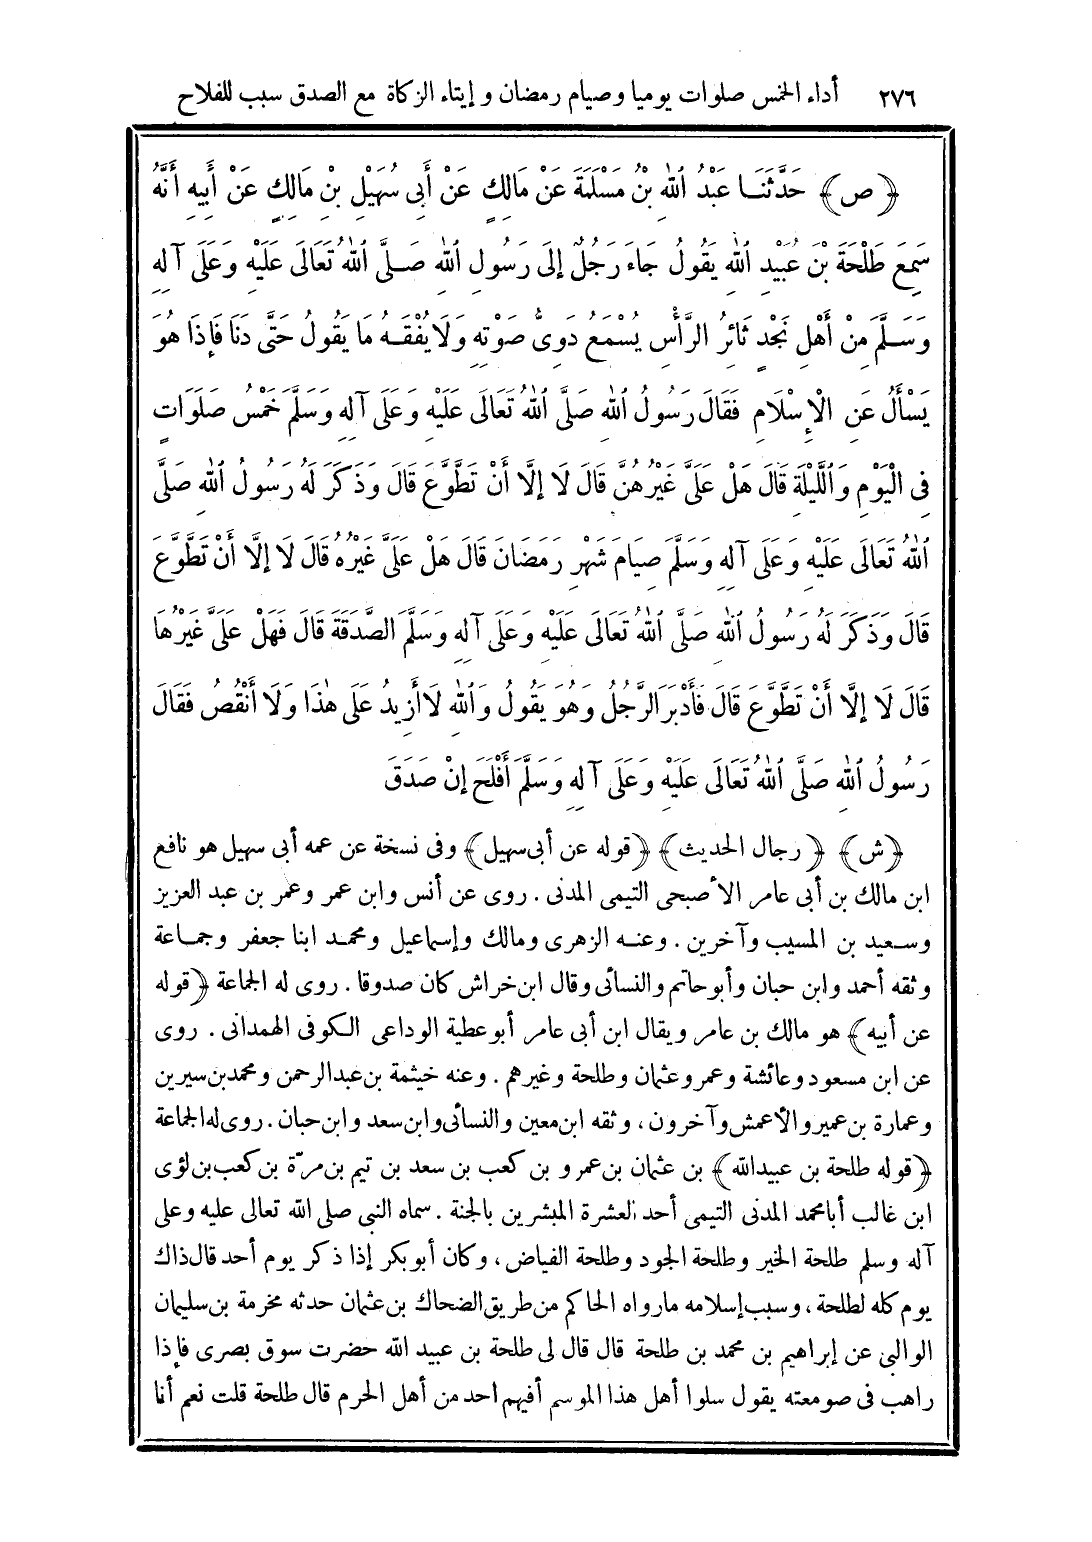 ٢٧٦ أداء الخمس صلوات يوميا وصيام رمضان و إيتاء الزكاة مع الصدق سبب للفلاح
﴿ص﴾ حَدَّثَنَا عَبْدُ اللهِ بْنُ مَسْلَمَةَ عَنْ مَالِكٍ عَنْ أَبِي سُهَيْلِ بْنِ مَالِكٍ عَنْ أَبِيهِ أَنَّهُ
سَمِعَ طَلْحَةَ بْنَ عُبَيْدِ اللهِ يَقُولُ جَاءَ رَجُلٌ إِلَى رَسُولِ اللهِ صَلَّى اللهُ تَعَالَى عَلَيْهِ وَعَلَى آلِهِ
وَسَلَّمَ مِنْ أَهْلِ نَجْدٍ ثَائِرُ الرَّأْسِ يُسْمَعُ دَوِىُّ صَوْتِهِ وَلَا يُفْقَهُ مَا يَقُولُ حَتَّى دَنَا فَإِذَا هُوَ
يَسْأَلُ عَنِ الْإِسْلَامِ فَقَالَ رَسُولُ اللهِ صَلَّى اللهُ تَعَالَى عَلَيْهِ وَعَلَى آلِهِ وَسَلَّمَ خَمْسُ صَلَوَاتٍ
فِى الْيَوْمِ وَاللَّيْلَةِ قَالَ هَلْ عَلَىَّ غَيْرُهُنَّ قَالَ لَا إِلَّا أَنْ تَطَّوَّعَ قَالَ وَذَكَرَ لَهُ رَسُولُ اللهِ صَلَّى
اللهُ تَعَالَى عَلَيْهِ وَعَلَى آلِهِ وَسَلَّمَ صِيَامَ شَهْرِ رَمَضَانَ قَالَ هَلْ عَلَىَّ غَيْرُهُ قَالَ لَا إِلَّا أَنْ تَطَّوَّعَ
قَالَ وَذَكَرَ لَهُ رَسُولُ اللهِ صَلَّى اللهُ تَعَالَى عَلَيْهِ وَعَلَى آلِهِ وَسَلَّمَ الصَّدَقَةَ قَالَ فَهَلْ عَلَىَّ غَيْرُهَا
قَالَ لَا إِلَّا أَنْ تَطَّوَّعَ قَالَ فَأَدْبَرَ الرَّجُلُ وَهُوَ يَقُولُ وَاللهِ لَا أَزِيدُ عَلَى هٰذَا وَلَا أَنْقُصُ فَقَالَ
رَسُولُ اللهِ صَلَّى اللهُ تَعَالَى عَلَيْهِ وَعَلَى آلِهِ وَسَلَّمَ أَفْلَحَ إِنْ صَدَقَ
﴿ش﴾ ﴿رجال الحديث﴾ ﴿قوله عن أبى سهيل﴾ وفى نسخة عن عمه أبى سهيل هو نافع
ابن مالك بن أبى عامر الأصبحى التيمى المدنى. روى عن أنس وابن عمر وعمر بن عبد العزيز
وسعيد بن المسيب وآخرين. وعنه الزهرى ومالك وإسماعيل ومحمد ابنا جعفر وجماعة
وثقه أحمد وابن حبان وأبو حاتم والنسائى وقال ابن خراش كان صدوقا. روى له الجماعة ﴿قوله
عن أبيه﴾ هو مالك بن عامر ويقال ابن أبى عامر أبو عطية الوداعى الكوفى الهمدانى. روى
عن ابن مسعود وعائشة وعمر وعثمان وطلحة وغيرهم. وعنه خيثمة بن عبد الرحمن ومحمد بن سيرين
وعمارة بن عمير والأعمش وآخرون، وثقه ابن معين والنسائى وابن سعد وابن حبان. روى له الجماعة
﴿قوله طلحة بن عبيد الله﴾ بن عثمان بن عمرو بن كعب بن سعد بن تيم بن مرّة بن كعب بن لؤى
ابن غالب أبا محمد المدنى التيمى أحد العشرة المبشرين بالجنة. سماه النبى صلى الله تعالى عليه وعلى
آله وسلم طلحة الخير وطلحة الجود وطلحة الفياض، وكان أبو بكر إذا ذكر يوم أحد قال ذاك
يوم كله لطلحة، وسبب إسلامه مارواه الحاكم من طريق الضحاك بن عثمان حدثه مخرمة بن سليمان
الوالبى عن إبراهيم بن محمد بن طلحة قال قال لى طلحة بن عبيد الله حضرت سوق بصرى فإذا
راهب فى صومعته يقول سلوا أهل هذا الموسم أفيهم احد من أهل الحرم قال طلحة قلت نعم أنا